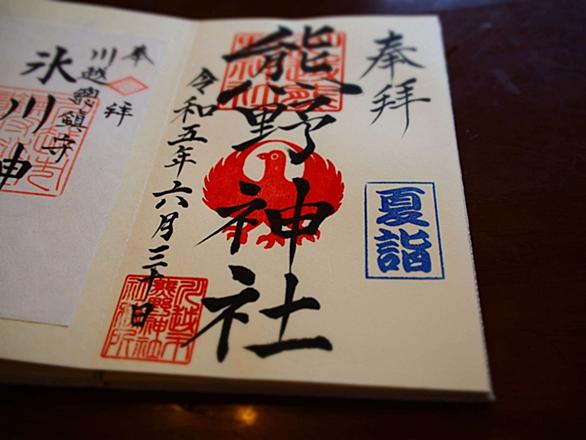 奉拝
夏詣
熊野神社
令和五年六月三十日
川越市
熊野神社
社務所
奉拝
川越總鎮守
氷川神